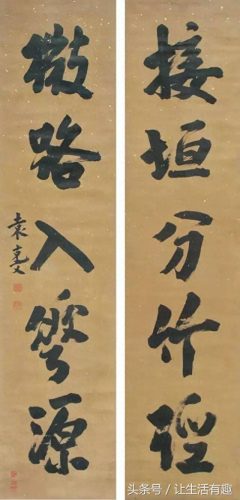 接垣分竹徑
微路入花源
袁克文
头条号 / 让生活有趣